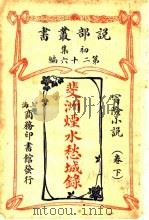 說部叢書
初集
第二十六編
冒險小說
斐洲煙水愁城錄
(卷下)
上海商務印書館發行